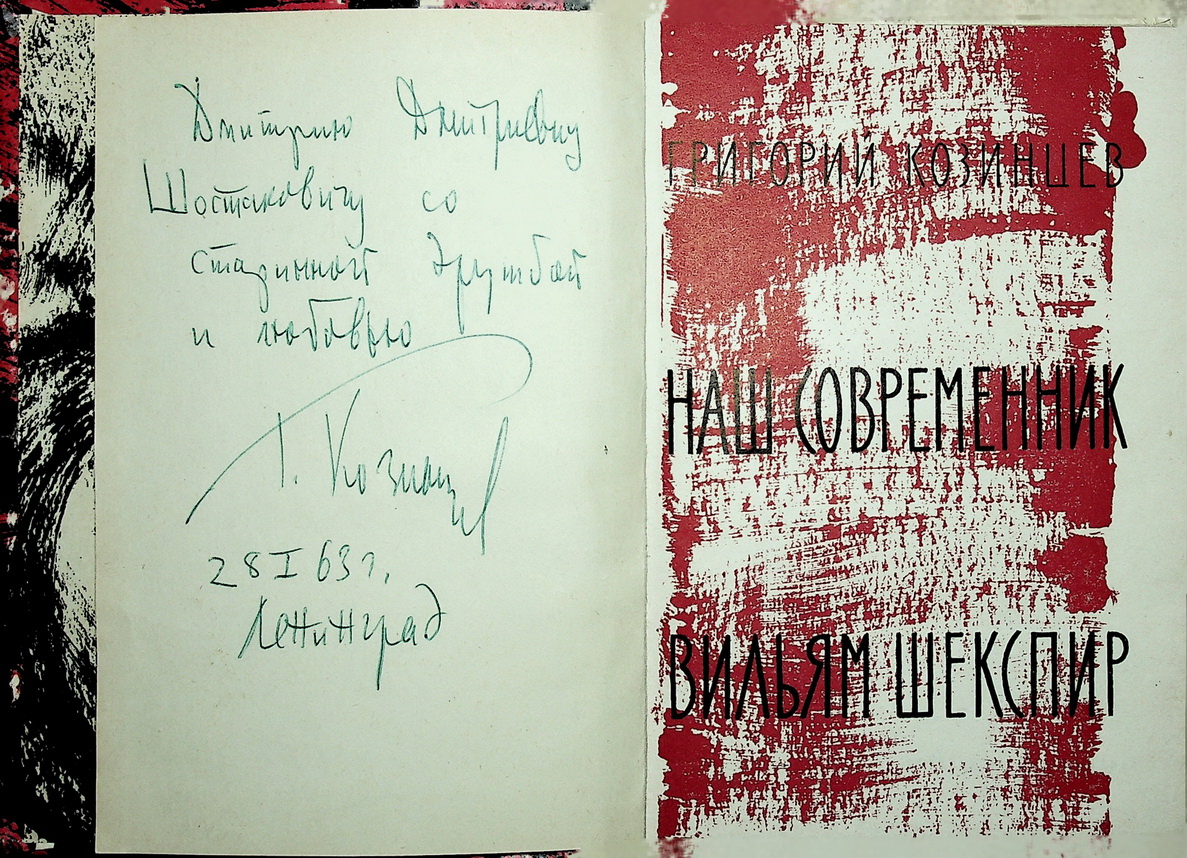 Дмитрию Дмитриевичу
Шостаковичу со
старинной дружбой
и любовью
Г. Козинцев
28 I 63 г.
Ленинград
ГРИГОРИЙ КОЗИНЦЕВ
НАШ СОВРЕМЕННИК
ВИЛЬЯМ ШЕКСПИР